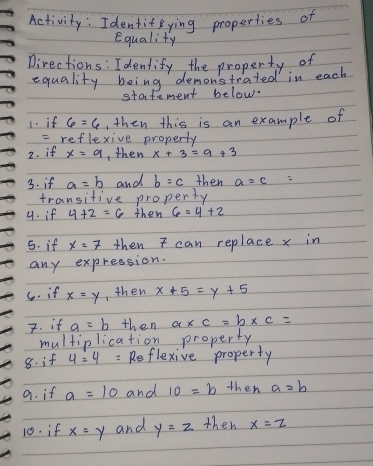 Activity: Identifying properties of
Equality
Directions: Identify the property of
equality being demonstrated in each
statement below.
1. if 6 = 6, then this is an example of
= reflexive property
2. if x = 9, then x + 3 = 9 + 3
3. if a = b and b = c then a = c =
transitive property
4. if 4+2 = 6 then 6 = 4+2
5. if x = 7 then 7 can replace x in
any expression.
6. if x = y, then x + 5 = y + 5
7. if a = b then a x c = b x c =
multiplication property
8. if 4 = 4 = Reflexive property
9. if a = 10 and 10 = b then a = b
10. if x = y and y = z then x = z